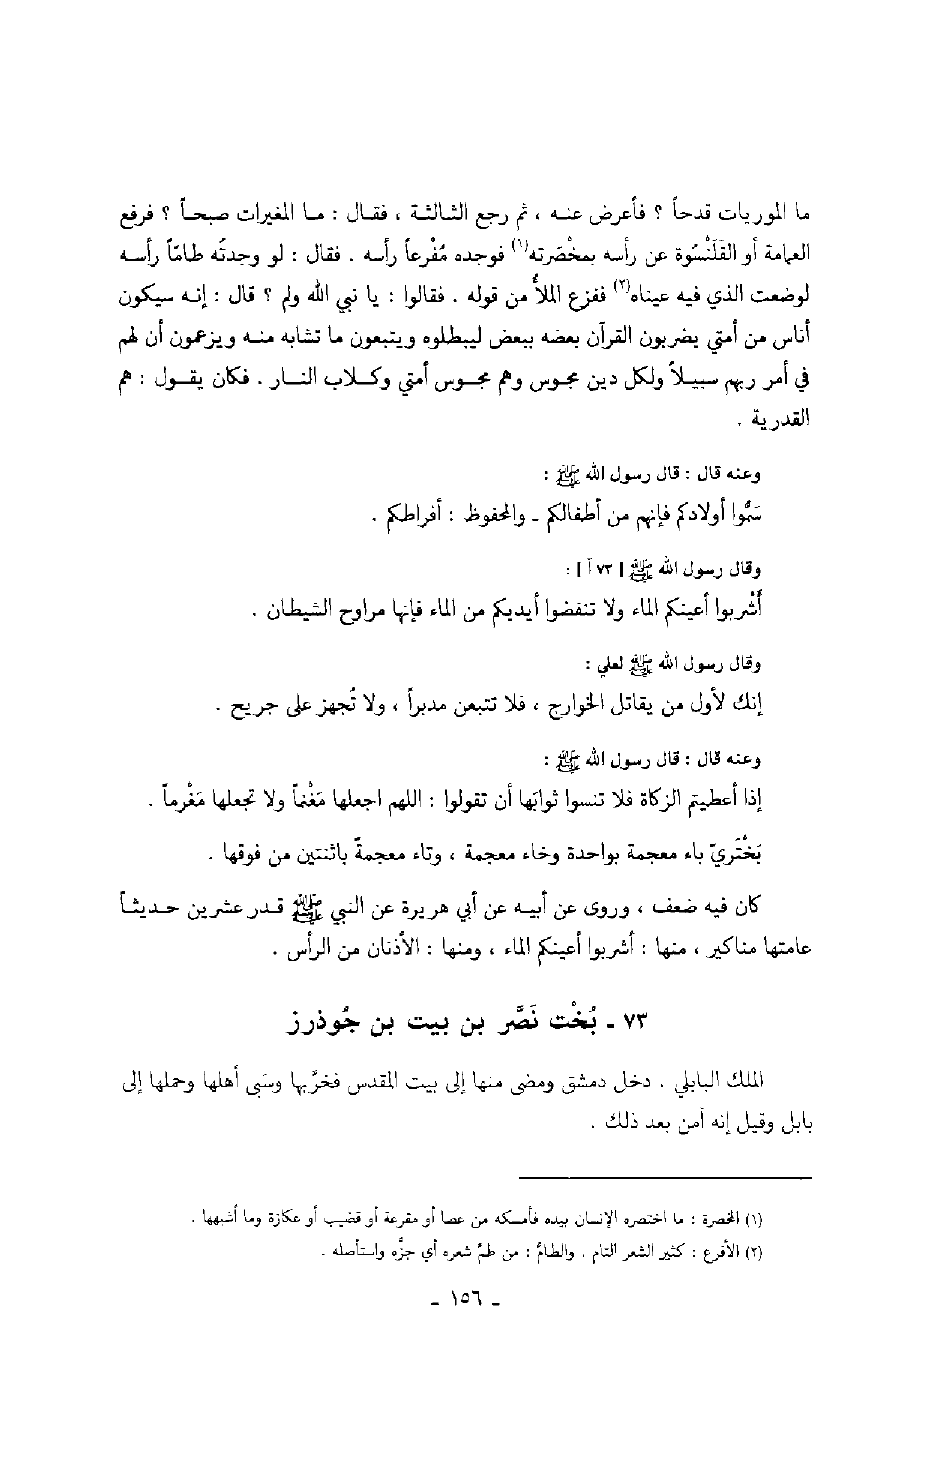 ما الموريات قدحاً ؟ فأعرض عنـه ، ثم رجع الثـالثـة ، فقـال : مـا المغيرات صبحـاً ؟ فرفع
العمامة أو القَلَنْسُوة عن رأسه بمخْصَرته(١) فوجده مُفْرعاً رأسـه . فقال : لو وجدتُه طامّاً رأسـه
لوضعت الذي فيه عيناه(٢) ففزع الملأ من قوله . فقالوا : يا نبي الله ولم ؟ قال : إنـه سيكون
أناس من أمتي يضربون القرآن بعضه ببعض ليبطلوه ويتبعون ما تشابه منـه ويزعمون أن لهم
في أمر ربهم سبيـلاً ولكل دين مجـوس وهم مجـوس أمتي وكـلاب النـار . فكان يقـول : هم
القدرية .
وعنه قال : قال رسول الله ﷺ :
سَمُّوا أولادكم فإنهم من أطفالكم ـ والمحفوظ : أفراطكم .
وقال رسول الله ﷺ [ ٧٣ آ ] :
أَشْربوا أعينكم الماء ولا تنفضوا أيديكم من الماء فإنها مراوح الشيطان .
وقال رسول الله ﷺ لعلي :
إنك لأول من يقاتل الخوارج ، فلا تتبعن مدبراً ، ولا تُجهز على جريح .
وعنه قال : قال رسول الله ﷺ :
إذا أعطيتم الزكاة فلا تنسوا ثوابَها أن تقولوا : اللهم اجعلها مَغْنماً ولا تجعلها مَغْرماً .
بَخْتَريّ باء معجمة بواحدة وخاء معجمة ، وتاء معجمةً باثنتين من فوقها .
كان فيه ضعف ، وروى عن أبيـه عن أبي هريرة عن النبي ﷺ قـدر عشرين حـديثـاً
عامتها مناكير ، منها : أشربوا أعينكم الماء ، ومنها : الأذنان من الرأس .
٧٣ ـ بُخْت نَصَّر بن بيت بن جُوذرز
الملك البابلي . دخل دمشق ومضى منها إلى بيت المقدس فخرَّبها وسَبى أهلها وحملها إلى
بابل وقيل إنه آمن بعد ذلك .
(١) المخصرة : ما اختصره الإنسان بيده فأمسكه من عصا أو مقرعة أو قضيب أو عكازة وما أشبهها .
(٢) الأفرع : كثير الشعر التام . والطامّ : من طمّ شعره أي جزَّه واستأصله .
ـ ١٥٦ ـ